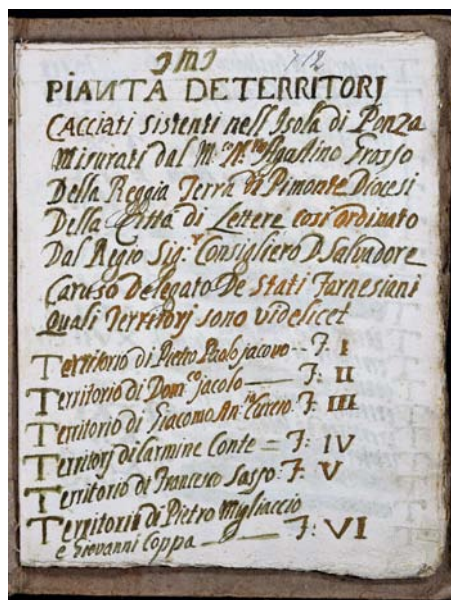 JMJ 712
PIANTA DETERRITORJ
CACciati sistenti nell Isola di Ponza
Misurati dal M.co N.ro Agostino Grosso
Della Reggia Terra di Pimonte Diocesi
Della Città di Lettere così ordinato
Dal Regio Sig.r Consigliero D. Salvadore
Caruso Delegato De Stati Farnesiani
Quali Territorj sono videlicet
Territorio di Pietro Paolo jacono -- F: I
Territorio di Dom.co jacolo — F: II
Territorio di Giacomo An.io F: III
Territorj di Carmine Conte = F: IV
Territorio di Francesco Sasso: F: V
Territorio di Pietro Migliaccio
e Giovanni Coppa — F: VI